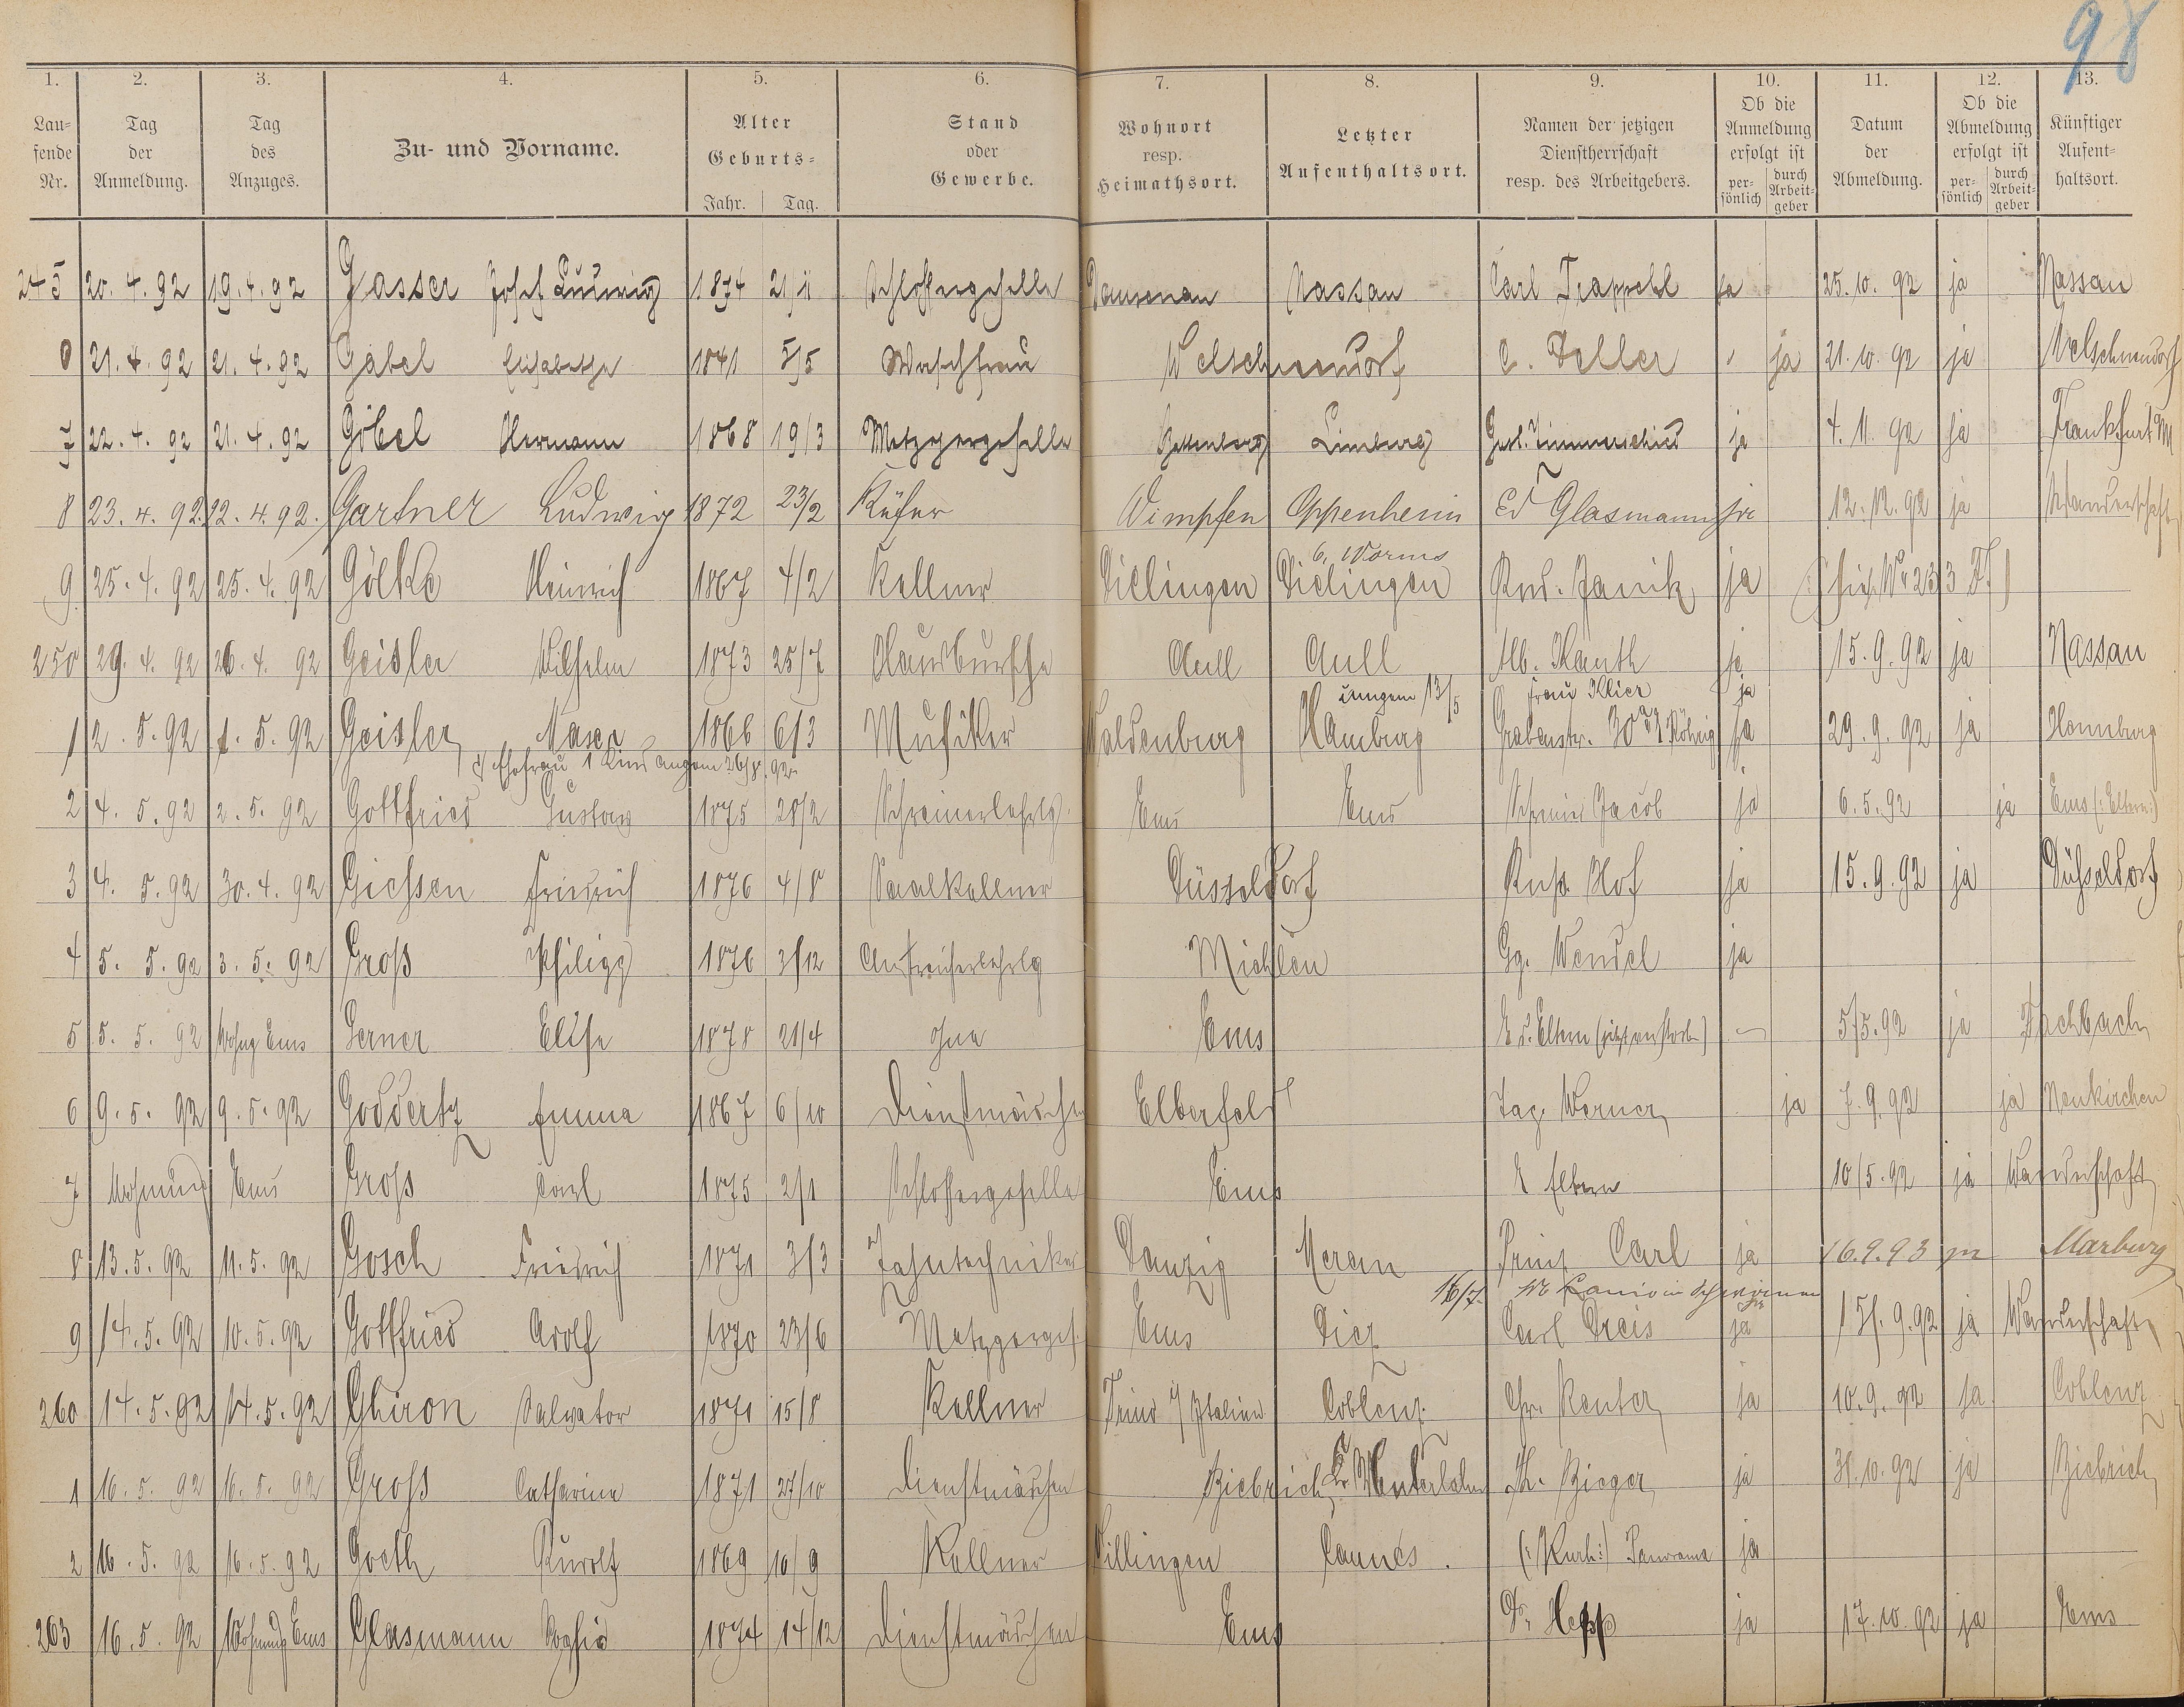 98
1. 2. 3. 4. 5. 6. 7. 8. 9. 10. 11. 12. 13.
Lau=fende Nr. Tag der Anmeldung. Tag des Anzuges. Zu- und Vorname. Alter Geburts= Jahr. Tag. Stand oder Gewerbe. Wohnort resp. Heimathsort. Letzter Aufenthaltsort. Namen der jetzigen Dienstherrschaft resp. des Arbeitgebers. Ob die Anmeldung erfolgt ist per-sönlich durch Arbeit-geber Datum der Abmeldung. Ob die Abmeldung erfolgt ist per-sönlich durch Arbeit-geber Künftiger Aufent-haltsort.
245 20. 4. 92 19. 4. 92 Gasser Josef Ludwig 1874 21/11 Schlossergeselle Dausenau Nassau Carl Trapphl ja 25. 10. 92 ja Nassau
6 21. 4. 92 21. 4. 92 Gabel Elisabetha 1841 5/5 Waschfrau Welschneudorf C. Feller " ja 21. 10. 92 ja Welschneudorf
7 22. 4. 92 21. 4. 92 Göbel Hermann 1868 19/3 Metzgergeselle Limburg Gust. Zimmerschied ja 4. 11. 92 ja Frankfurt M
8 23. 4. 92. 22. 4. 92. Gartner Ludwig 1872 23/2 Küfer Wimpfen Oppenheim Ed Glasmann ja 12. 12. 92 ja Wanderschaft
b. Worms
9 25. 4. 92 25. 4. 92 Gölke Heinrich 1867 4/2 Kellner Dielingen Dielingen Rud. Janik ja (siehe Nr 233 F.)
250 29. 4. 92 26. 4. 92 Geisler Wilhelm 1873 25/7 Hausbursche Aull Aull Alb. Kauth ja 15. 9. 92 ja Nassau
umgem 13/5 Frau Klier ja
1 2. 5. 92 1. 5. 92 Geisler Maxe 1866 6/3 Musiker Waldenburg Hamburg Grabenstr. 30 Röhrig ja 29. 9. 92 ja Homburg
Ehefrau 1 Kind angem 26/8. 92
2 4. 5. 92 2. 5. 92 Gottfried Gustav 1875 28/2 Schreinerlehrlg. Ems Ems Schreiner Jacob ja 6. 5. 92 ja Ems (: Eltern :)
3 4. 5. 92 30. 4. 92 Giessen Friedrich 1876 4/8 Saalkellner Düsseldorf Russ. Hof ja 15. 9. 92 ja Düsseldorf
4 5. 5. 92 3. 5. 92 Groß Philipp 1876 3/12 Anstreicherlehrlg Miehlen Gg. Wendel ja
5 5. 5. 92 Wohng Ems Gerner Elise 1878 21/4 ohne Ems b. d. Eltern (jetzt verstorben) — 5/5. 92 ja Fachbach
6 9. 5. 92 9. 5. 92 Goddertz Emma 1867 6/10 Dienstmädchen Elberfeld Jag. Werner ja 7. 9. 92 ja Neukirchen
7 Wohnung Ems Groß Carl 1875 2/1 Schlossergeselle Ems b Eltern 10/5. 92 ja Wanderschaft
8 13. 5. 92 11. 5. 92 Gosch Friedrich 1871 3/3 Zahntechniker Danzig Meran Prinz Carl ja 16. 9. 93 ja Marburg
16/7.
9 14. 5. 92 10. 5. 92 Gottfried Adolf 1870 23/6 Metzgerges. Ems Diez Carl Dreis ja 15. 9. 92 ja Wanderschaft
260 14. 5. 92 14. 5. 92 Ghiron Salvator 1871 15/8 Kellner Trino i/Italien Coblenz Chr. Reuter ja 10. 9. 92 ja Coblenz
1 16. 5. 92 16. 5. 92 Groß Catharina 1871 27/10 Dienstmädchen Biebrich Kr. Unterlahn Th. Bieger ja 31. 10. 92 ja Biebrich
2 16. 5. 92 16. 5. 92 Goeth Rudolf 1869 10/9 Kellner Villingen Cannes. (: Kurh :) Panorama ja
263 16. 5. 92 Wohnung Ems Glasmann Sophie 1874 14/12 Dienstmädchen Ems Dr. Hepp ja 17. 10. 92 ja Ems